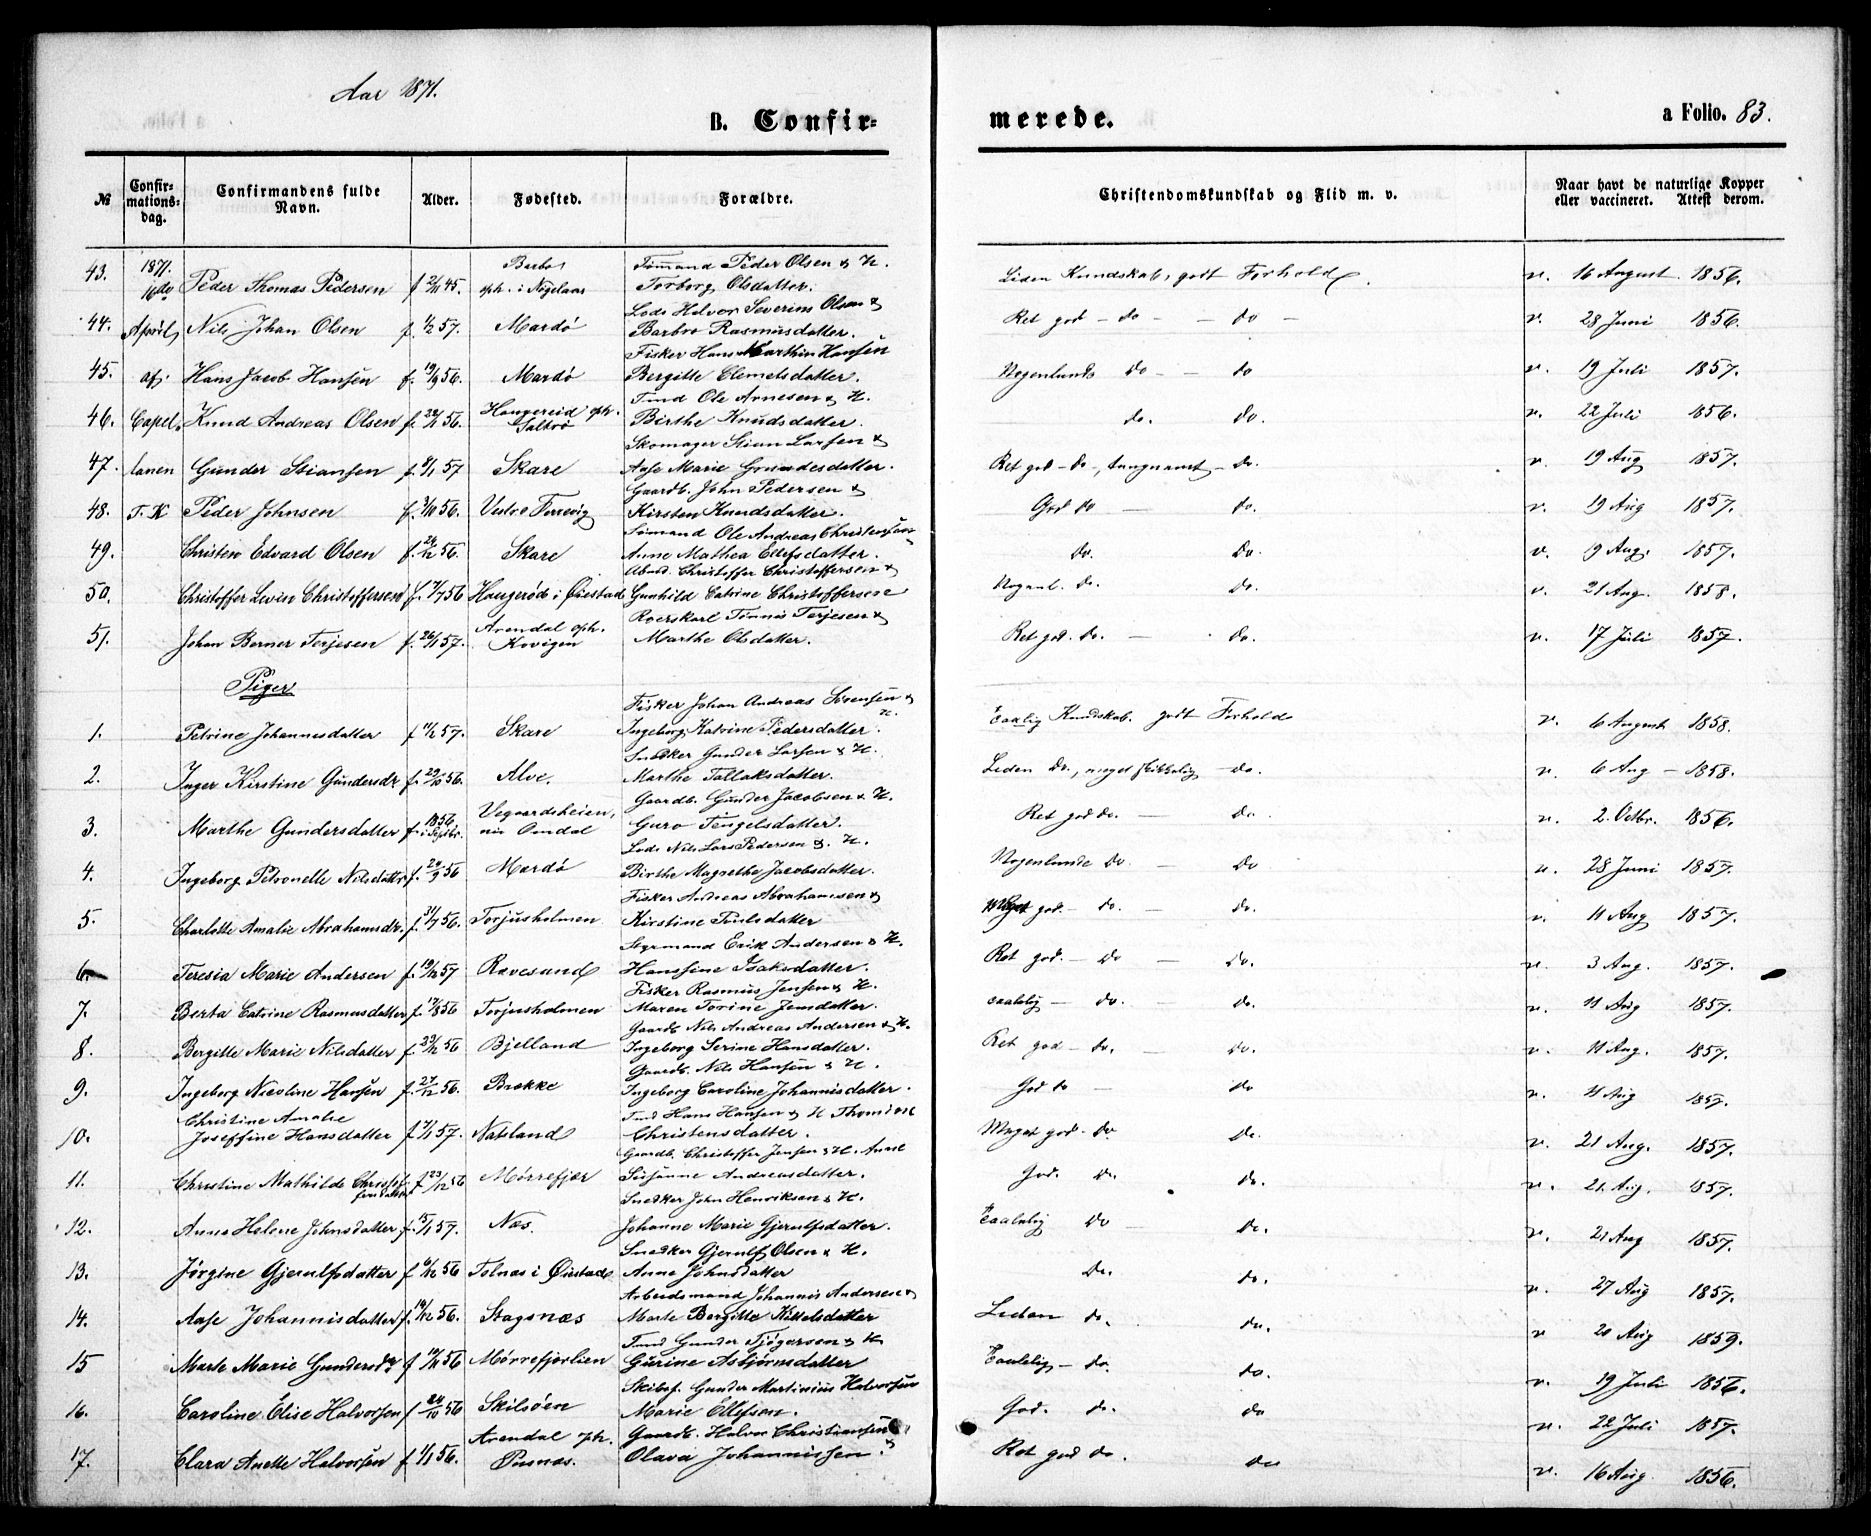 Aar 1871.
B. Confir-
merede.
a Folio. 83.
№
Confir-
mations-
dag.
Confirmandens fulde
Navn.
Alder.
Fødested.
Forældre.
Christendomskundskab og Flid m. v.
Naar havt de naturlige Kopper
eller vaccineret. Attest derom.
43. 1871. 16de Peder Thomas Pedersen f 2/11 45. Barbo oph. i Nygelaas Sømand Peder Olsen & H. Torborg Olsdatter. Liden Kundskab, godt Forhold v. 16 August 1856.
44. April Nils Johan Olsen f. 1/2 57. Mardø Lods Halvor Severin Olsen & Barbro Rasmusdatter. Ret god - do - - do - v. 28 Juni 1856.
45. af Hans Jacob Hansen f. 19/9 56. Mardø Fisker Hans Marthin Hansen Bergitte Clemetsdatter. Nogenlunde do - - do v. 19 Juli 1857.
46. Capel- Knud Andreas Olsen f. 56. oph. Saltrø Tmd Ole Arnesen & H. Birthe Knudsdatter. do. do. v. 22 Juli 1856.
47. lanen Gunder Stiansen f. 57 Skare Skomager Stian Larsen & Aase Marie Gundesdatter. Ret god - do -, tungnæmt - do. v. 19 Aug 1857.
48. T. K Peder Johnsen f. 3/10 56. Vestre Torrevig Gaardb. John Pedersen & Kirsten Knudsdatter. God do - do. v. 19 Aug 1857.
49. Christen Edvard Olsen f. 24/12 56. Skare Sømand Ole Andreas Christensen Anne Mathea Ellefsdatter. do. do. v. 19 Aug. 1857.
50. Christoffer Levin Christoffersen f. 56 Haugerød i Øiestad Abmd. Christoffer Christoffersen & Gunhild Catrine Christoffersen Nogenl. do. do. v. 21 Aug. 1858.
51. Johan Berner Terjesen f. 26/1 57. Arendal oph. Kovigen Roerskarl Tønnes Terjesen & Marthe Olsdatter. Ret god. do. - do. v. 17 Juli 1857.
Piger
1. Petrine Johannesdatter f 11/2 57. Skare Fisker Johan Andreas Sørensen & H. Ingeborg Katrine Pedersdatter. Taalig Kundskab. godt Forhold v. 6 August 1858.
2. Inger Kirstine Gundersdr f. 29/10 56. Alve. Snedker Gunder Larsen & H. Marthe Tallaksdatter. Liden do., meget skikkelig - do. v. 6 Aug - 1858.
3. Marthe Gundersdatter f. 1856. i Septbr. Vegaardsheien, nu Omdal Gaardb. Gunder Jacobsen & H. Guro Tengelsdatter. Ret god do. - do. v. 2. Octbr. 1856.
4. Ingeborg Petronelle Nilsdatter f. 24/9 56 Mærdø Lods Nils Lars Pedersen & H. Birthe Magrethe Jacobsdatter. Nogenlunde do. - do v. 28 Juni 1857.
5. Charlotte Amalie Abrahamsdr. f. 31/7 56. Torjusholmen Fisker Andreas Abrahamsen & Kirstine Poulsdatter god. - do. - do. v. 11 Aug 1857.
6. Teresia Marie Andersen f. 19/12 57 Rævesand Styrmand Erik Andersen & H. Hansine Isaksdatter. Ret god. - do - do. v. 3 Aug. 1857.
7. Berta Catrine Rasmusdatter f. 17/8 56 Torjusholmen Fisker Rasmus Jensen & H. Maren Torine Jensdatter. taalelig - do. - do. v. 11 Aug 1857.
8. Bergitte Marie Nilsdatter f. 29/12 56 Bjelland Gaardb. Nils Andreas Andersen & H. Ingeborg Serine Hansdatter. Ret god - do. - do. v. 11 Aug. 1857.
9. Ingeborg Nicoline Hansen f. 27/12 56. Brekke Gaardb. Nils Hansen & H. Ingeborg Caroline Johannisdatter. God do - do v. 11 Aug 1857.
10. Christine Amalie Joseffine Hansdatter f 57. Natsland Tmd Hans Hansen & H Thomine Christensdatter. Meget god - do do. v. 21 Aug. 1857.
11. Christine Mathilde f 23/12 56 Mørrefjær Gaardb. Christoffer Jensen & H. Anne Susanne Andreasdatter. God. do. do. v. 21. Aug. 1857.
12. Anne Helene Johnsdatter f. 15/1 57. Næs. Snedker John Henriksen & H. Johanne Marie Gjerulfsdatter. Taalelig do - do. v. 21 Aug 1857.
13. Jørgine Gjerulfsdatter f 6/12 56 Tolnæs i Øiestad Snedker Gjerulf Olsen & H. Anne Johnsdatter do. do. v. 27 Aug 1857.
14. Aase Johannisdatter f. 14/12 56. Stagsnæs Arbeidsmand Johannis Andersen & Marte Bergitte Kittelsdatter Liden do. do. v 20 Aug 1859.
15 Marte Marie Gundersdr f 11/11 56 Mørrefjerlien Tmd Gunder Tjøgersen & H Gurine Asbjørnsdatter Taalelig - do. do. v. 19 Juli 1856.
16. Caroline Elise Halvorsen f 24/10 56 Skilsøen Skibsf. Gunder Martinius Halvorsen Marie Ellefsen. God. do. do v. 22 Juli 1857.
17. Clara Anette Halvorsen f 1/1 56. Arendal oph. Pusnæs. Gaardb. Halvor Christiansen & Olava Johannissen. Ret god do. do v. 16 Aug. 1856.